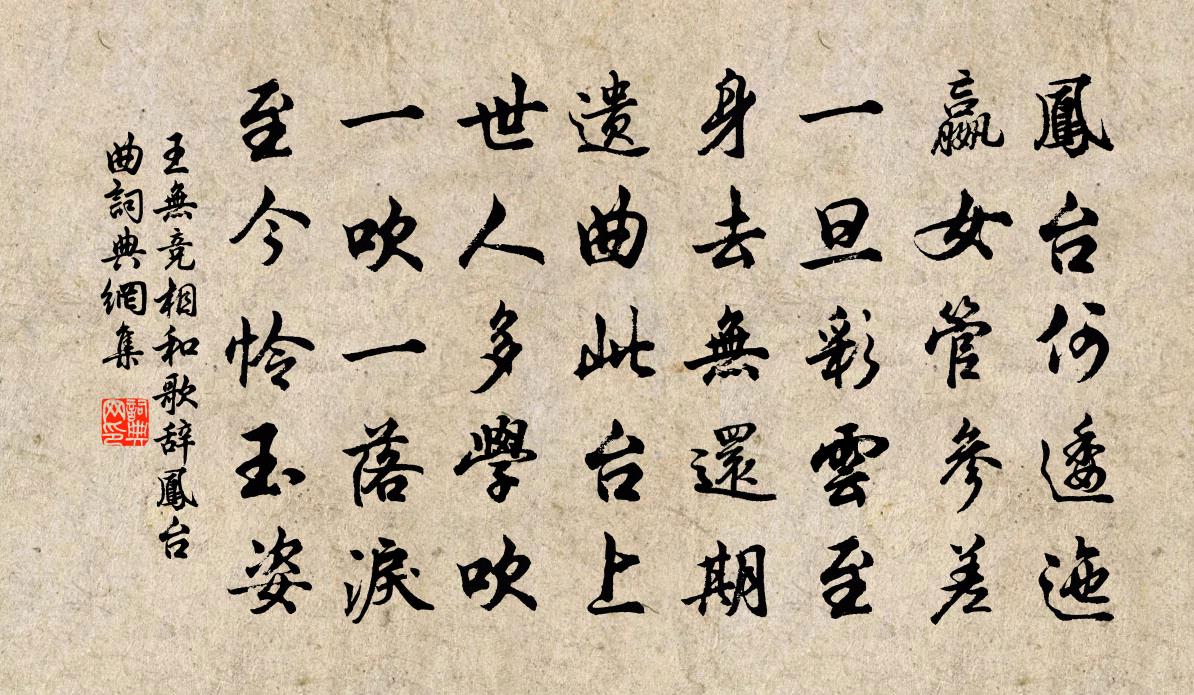 鳳台何逶迤
嬴女管參差
一旦彩雲至
身去無還期
遺曲此台上
世人多學吹
一吹一落淚
至今憐玉姿
王無競相和歌辞鳳台
曲詞典網集
詞典
网印